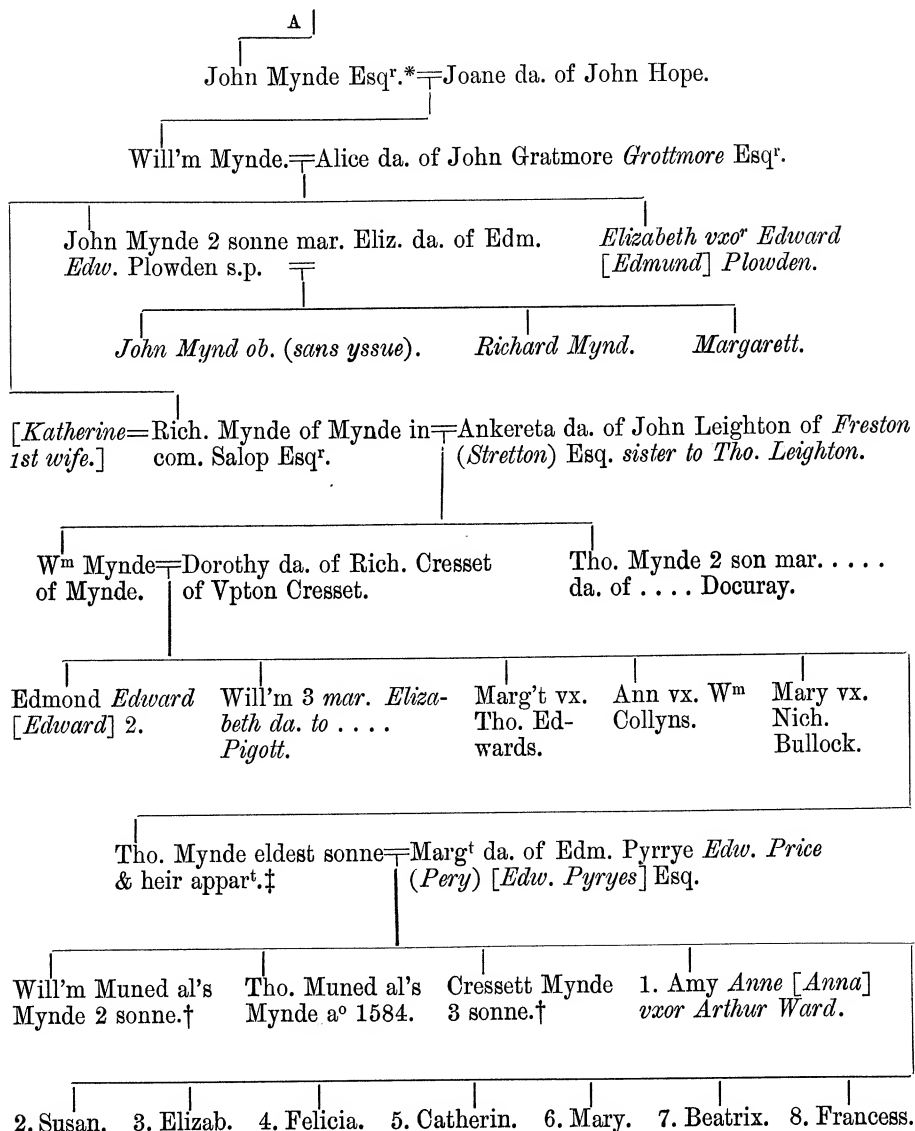 A
John Mynde Esqʳ.*=Joane da. of John Hope.
Will'm Mynde.=Alice da. of John Gratmore Grottmore Esqʳ.
John Mynde 2 sonne mar. Eliz. da. of Edm.
Edw. Plowden s.p.
Elizabeth vxoʳ Edward
[Edmund] Plowden.
John Mynd ob. (sans yssue).
Richard Mynd.
Margarett.
[Katherine=Rich. Mynde of Mynde in=Ankereta da. of John Leighton of Freston
1st wife.] com. Salop Esqʳ. (Stretton) Esq. sister to Tho. Leighton.
Wᵐ Mynde=Dorothy da. of Rich. Cresset
of Mynde. of Vpton Cresset.
Tho. Mynde 2 son mar. . . . . .
da. of . . . . Docuray.
Edmond Edward
[Edward] 2.
Will'm 3 mar. Eliza-
beth da. to . . . .
Pigott.
Marg't vx.
Tho. Ed-
wards.
Ann vx. Wᵐ
Collyns.
Mary vx.
Nich.
Bullock.
Tho. Mynde eldest sonne=Margᵗ da. of Edm. Pyrrye Edw. Price
& heir apparᵗ.‡ (Pery) [Edw. Pyryes] Esq.
Will'm Muned al's
Mynde 2 sonne.†
Tho. Muned al's
Mynde aº 1584.
Cressett Mynde
3 sonne.†
1. Amy Anne [Anna]
vxor Arthur Ward.
2. Susan. 3. Elizab. 4. Felicia. 5. Catherin. 6. Mary. 7. Beatrix. 8. Francess.